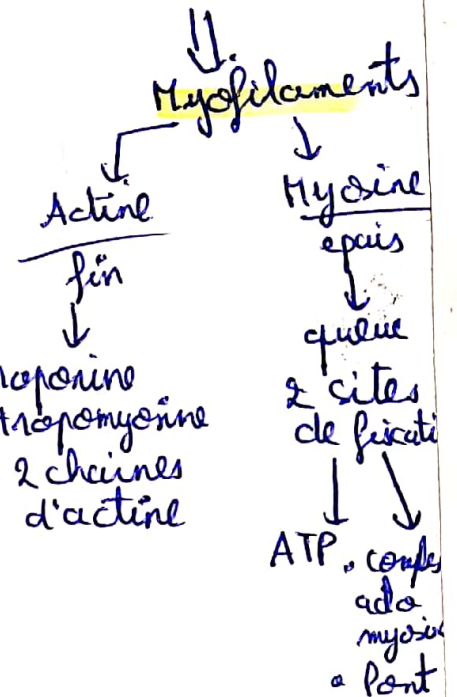 Myofilaments
Actine
fin
troponine
tropomyosine
2 chaines
d'actine
Myosine
epais
queue
2 sites
de fixati
ATP
myosi
Pont